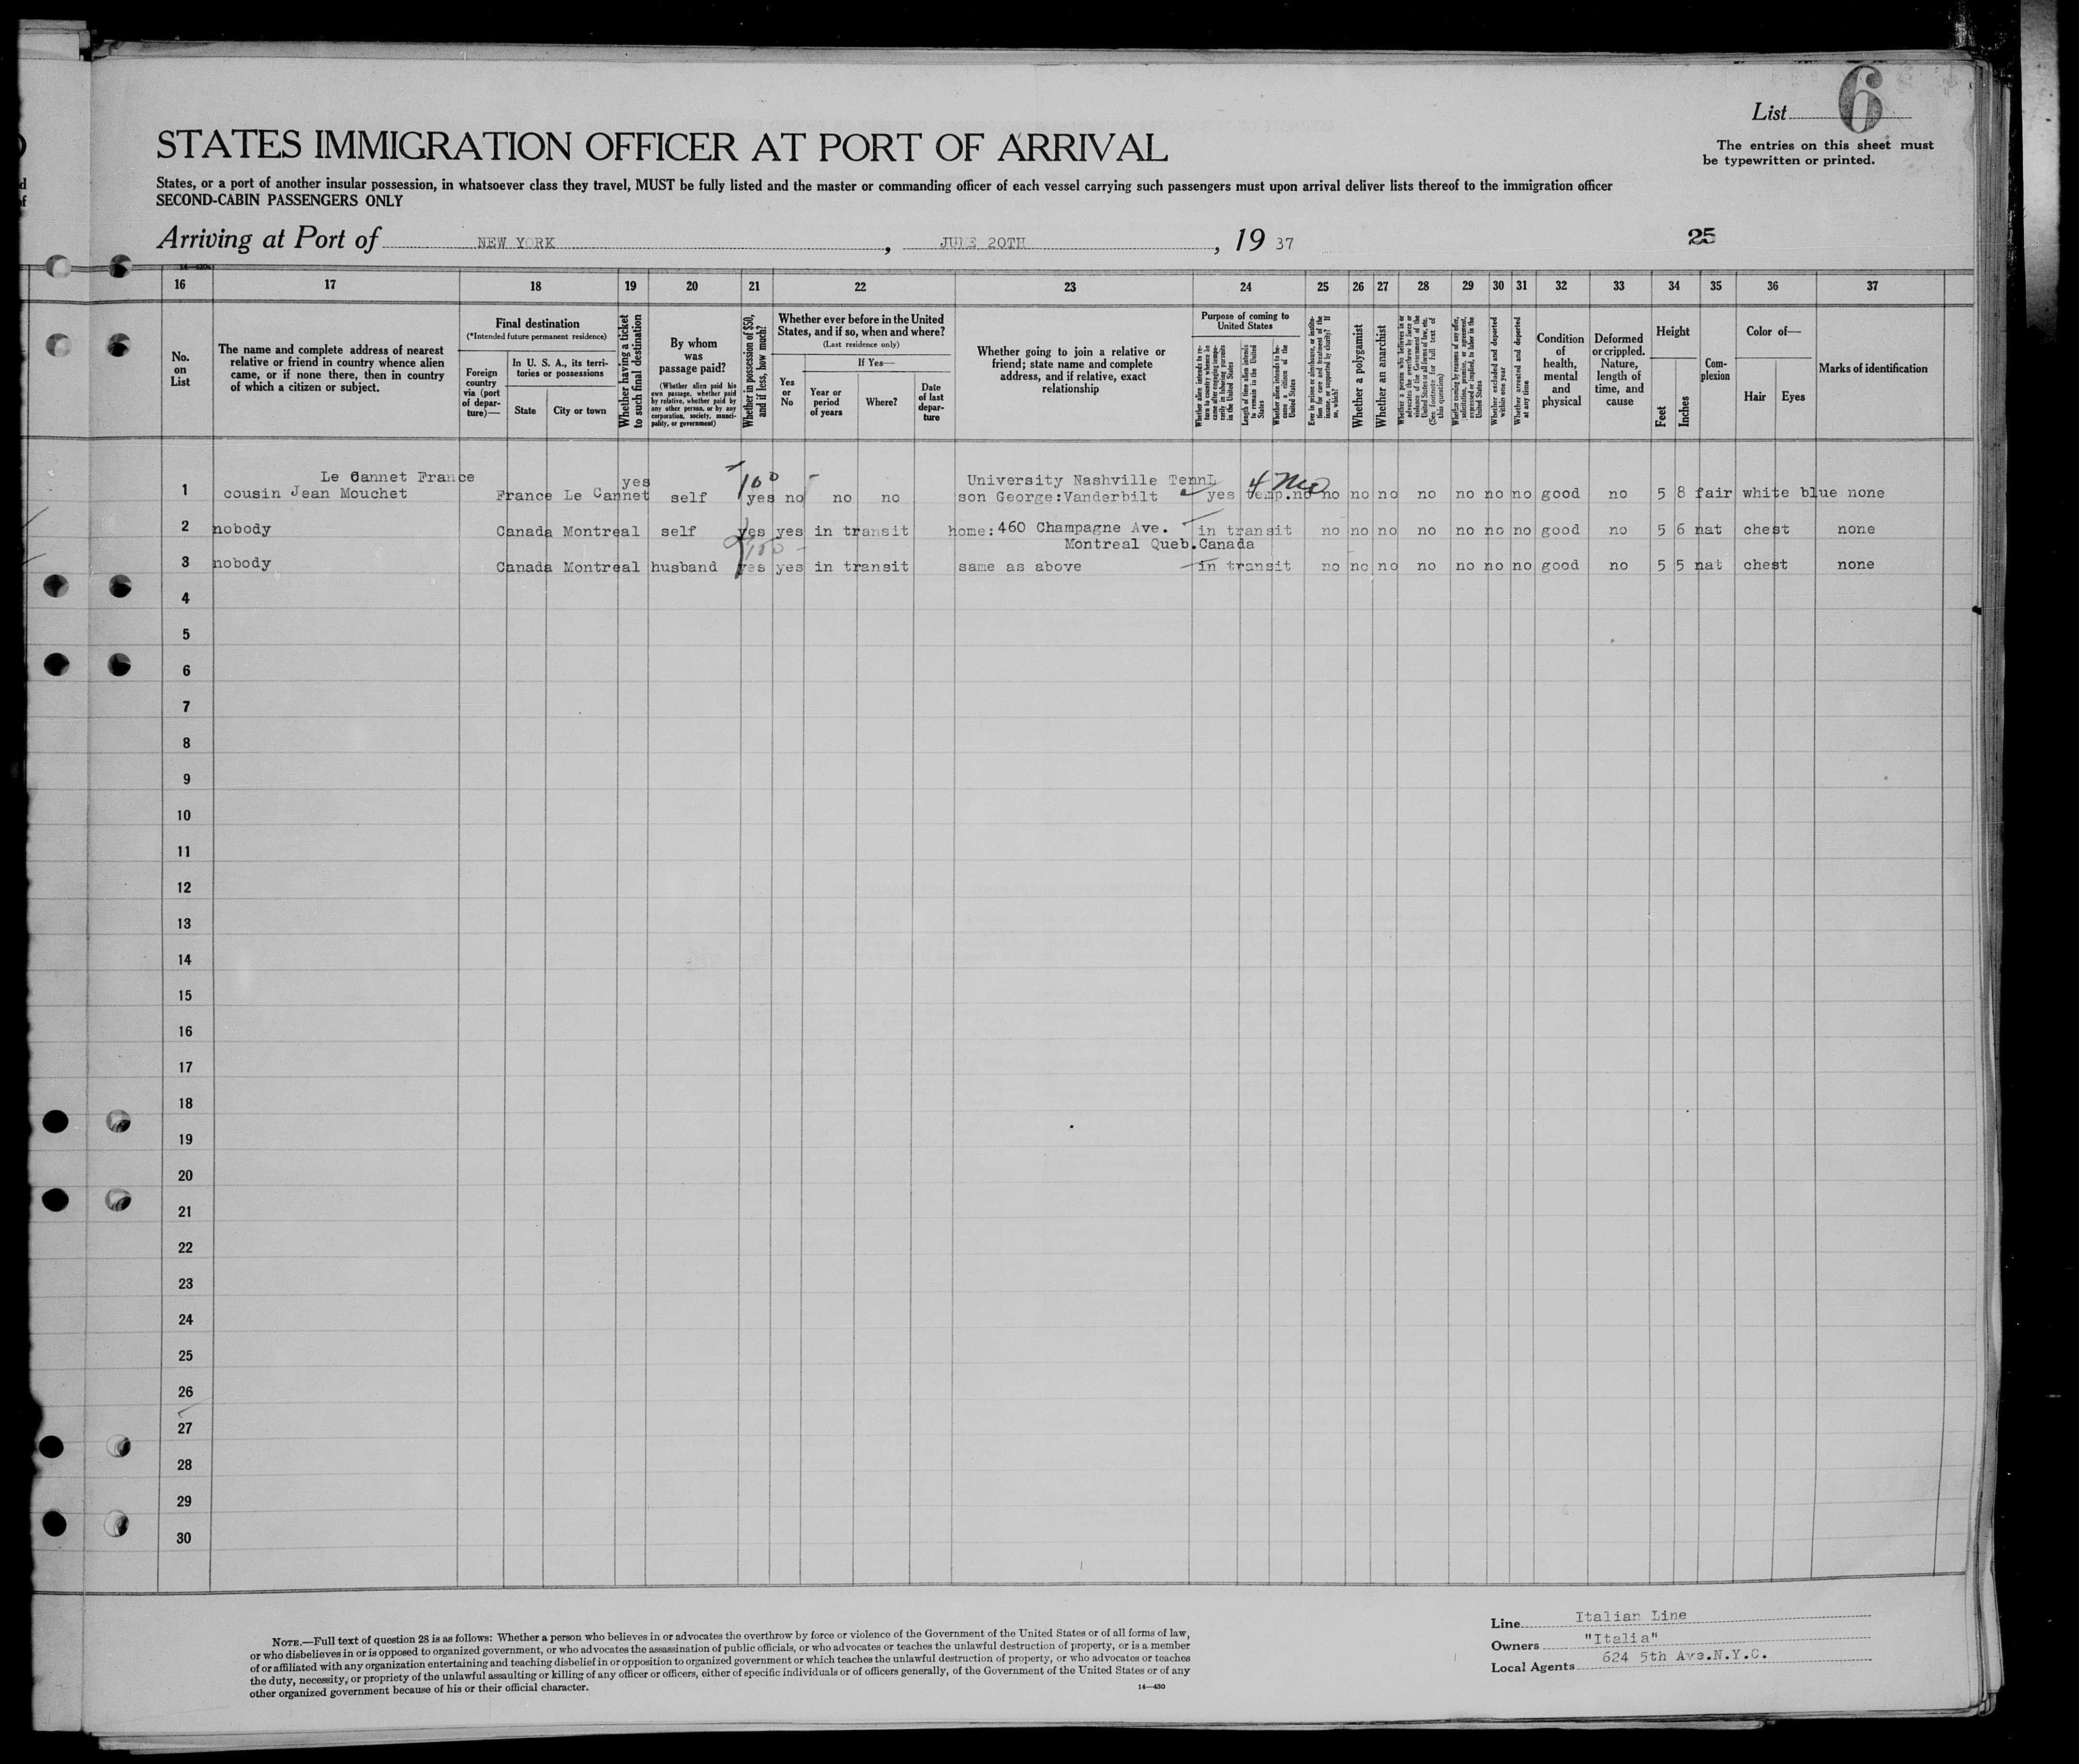 List 6
The entries on this sheet must
be typewritten or printed.
STATES IMMIGRATION OFFICER AT PORT OF ARRIVAL
States, or a port of another insular possession, in whatsoever class they travel, MUST be fully listed and the master or commanding officer of each vessel carrying such passengers must upon arrival deliver lists thereof to the immigration officer
SECOND-CABIN PASSENGERS ONLY
Arriving at Port of NEW YORK, JUNE 20TH, 19 37
25
16 17 18 19 20 21 22 23 24 25 26 27 28 29 30 31 32 33 34 35 36 37
No.
on
List
The name and complete address of nearest
relative or friend in country whence alien
came, or if none there, then in country
of which a citizen or subject.
Final destination
(*Intended future permanent residence)
Foreign
country
via (port
of depar-
ture)—
In U. S. A., its terri-
tories or possessions
State
City or town
Whether having a ticket
to such final destination
By whom
was
passage paid?
(Whether alien paid his
own passage, whether paid
by relative, whether paid by
any other person, or by any
corporation, society, munici-
pality, or government)
Whether in possession of $50,
and if less, how much?
Whether ever before in the United
States, and if so, when and where?
(Last residence only)
Yes
or
No
If Yes—
Year or
period
of years
Where?
Date
of last
depar-
ture
Whether going to join a relative or
friend; state name and complete
address, and if relative, exact
relationship
Purpose of coming to
United States
Whether alien intends to re-
turn to country whence he
came after engaging tempo-
rarily in laboring pursuits
in the United States
Length of time alien intends
to remain in the United
States
Whether alien intends to be-
come a citizen of the
United States
Ever in prison or almshouse, or institu-
tion for care and treatment of the
insane, or supported by charity? If
so, which?
Whether a polygamist
Whether an anarchist
Whether a person who believes in or
advocates the overthrow by force or
violence of the Government of the
United States or all forms of law, etc.
(See footnote for full text of
this question)
Whether coming by reasons of any offer,
solicitation, promise, or agreement,
expressed or implied, to labor in the
United States
Whether excluded and deported
within one year
Whether arrested and deported
at any time
Condition
of
health,
mental
and
physical
Deformed
or crippled.
Nature,
length of
time, and
cause
Height
Feet
Inches
Com-
plexion
Color of—
Hair
Eyes
Marks of identification
Le Cannet France yes 100 University Nashville Tenn
1 cousin Jean Mouchet France Le Cannet self yes no no no son George:Vanderbilt yes temp. no no no no no no no no good no 5 8 fair white blue none
2 nobody Canada Montreal self yes yes in transit home: 460 Champagne Ave. in transit no no no no no no no good no 5 6 nat chest none
Montreal Queb.Canada
3 nobody Canada Montreal husband yes yes in transit same as above in transit no no no no no no no good no 5 5 nat chest none
4
5
6
7
8
9
10
11
12
13
14
15
16
17
18
19
20
21
22
23
24
25
26
27
28
29
30
NOTE.—Full text of question 28 is as follows: Whether a person who believes in or advocates the overthrow by force or violence of the Government of the United States or of all forms of law,
or who disbelieves in or is opposed to organized government, or who advocates the assassination of public officials, or who advocates or teaches the unlawful destruction of property, or is a member
of or affiliated with any organization entertaining and teaching disbelief in or opposition to organized government or which teaches the unlawful destruction of property, or who advocates or teaches
the duty, necessity, or propriety of the unlawful assaulting or killing of any officer or officers, either of specific individuals or of officers generally, of the Government of the United States or of any
other organized government because of his or their official character.
14—430
Line Italian Line
Owners "Italia"
Local Agents 624 5th Ave.N.Y.C.